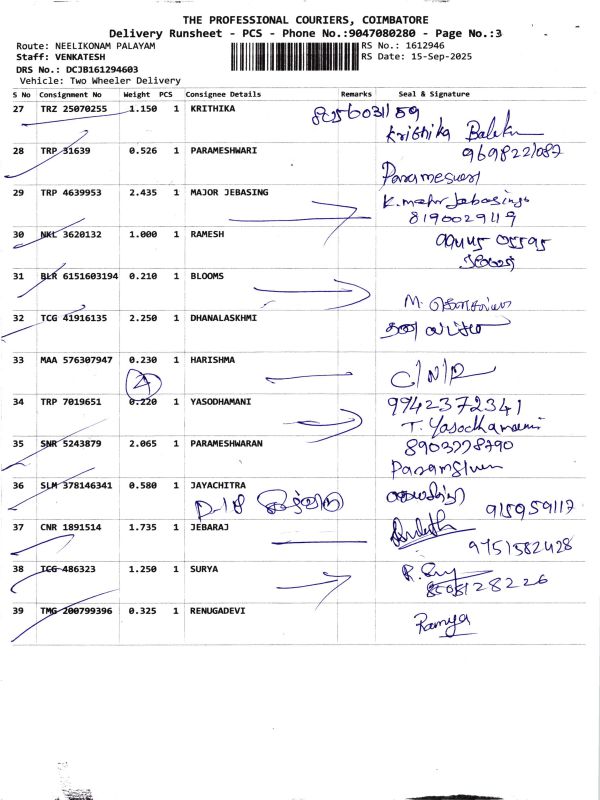 THE PROFESSIONAL COURIERS, COIMBATORE
Delivery Runsheet - PCS - Phone No.:9047080280 - Page No.:3
Route: NEELIKONAM PALAYAM RS No.: 1612946
Staff: VENKATESH RS Date: 15-Sep-2025
DRS No.: DCJB161294603
Vehicle: Two Wheeler Delivery
S No Consignment No Weight PCS Consignee Details Remarks Seal & Signature
27 TRZ 25070255 1.150 1 KRITHIKA
Krithika
28 TRP 31639 0.526 1 PARAMESHWARI
Parameswari
29 TRP 4639953 2.435 1 MAJOR JEBASING
8190029119
30 NKL 3620132 1.000 1 RAMESH
31 BLR 6151603194 0.210 1 BLOOMS
M.
32 TCG 41916135 2.250 1 DHANALASKHMI
33 MAA 576307947 0.230 1 HARISHMA
4 C/N/P
34 TRP 7019651 0.220 1 YASODHAMANI 9942372341
T. Yasodhamani
35 SNR 5243879 2.065 1 PARAMESHWARAN
36 SLM 378146341 0.580 1 JAYACHITRA
37 CNR 1891514 1.735 1 JEBARAJ
9751582428
38 TCG 486323 1.250 1 SURYA
39 TMG 200799396 0.325 1 RENUGADEVI
Ramya